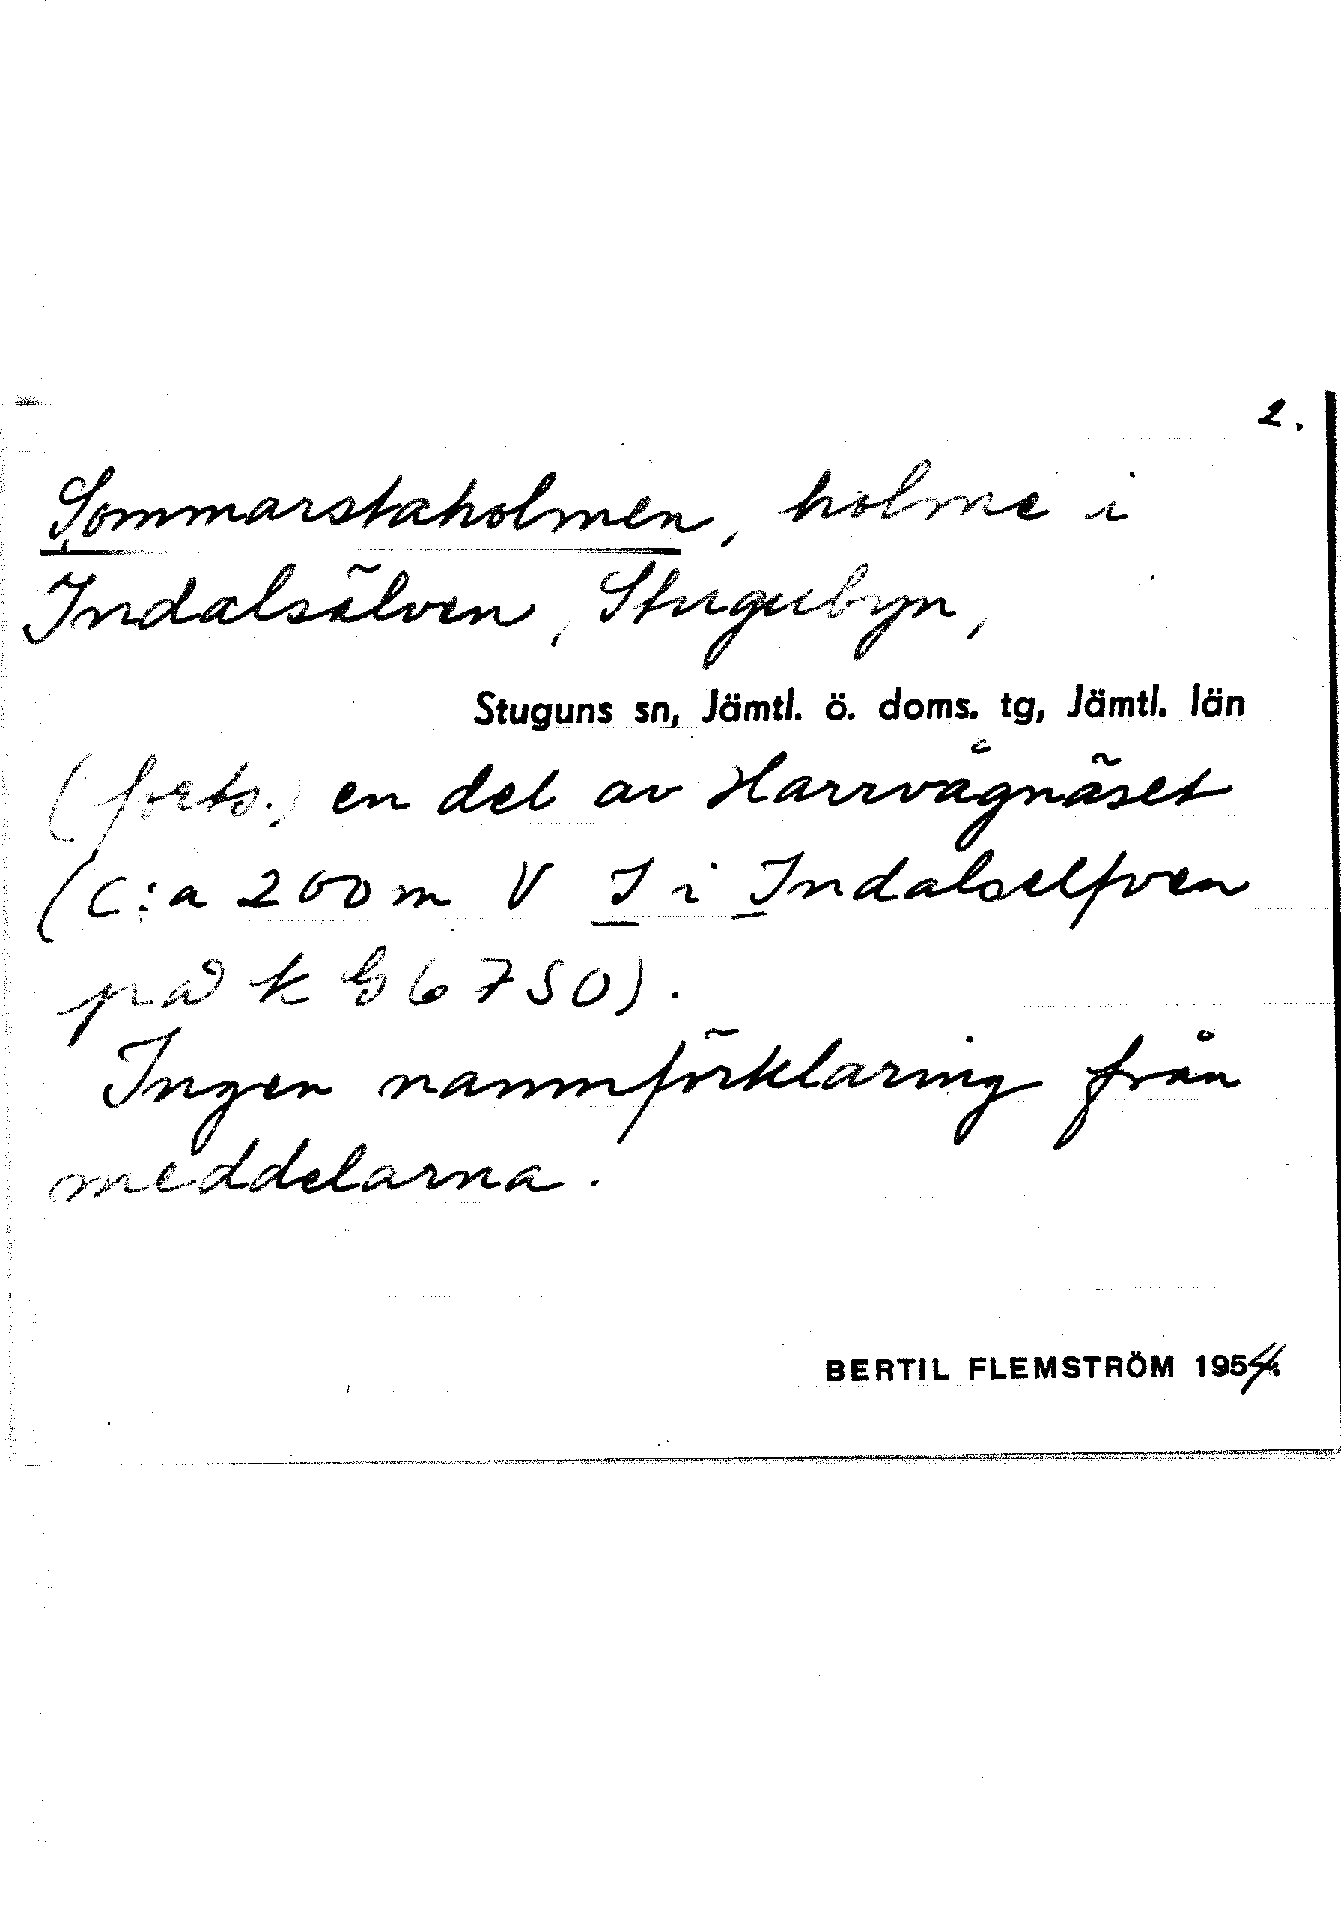 2.
Sommarstaholmen, holme i
Indalsälven, Stugubyn,
Stuguns sn, Jämtl. ö. doms. tg, Jämtl. län
(forts.) en del av Harrvågnäset
(c:a 200 m V I i Indalselfven
på k G 6750).
Ingen namnförklaring från
meddelarna.
BERTIL FLEMSTRÖM 1954.